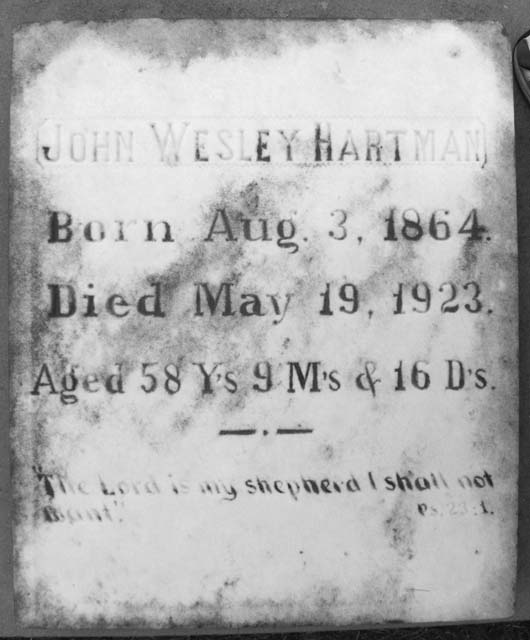 JOHN WESLEY HARTMAN
Born Aug. 3, 1864.
Died May 19, 1923.
Aged 58 Y's 9 M's & 16 D's.
"The Lord is my shepherd I shall not
want". Ps. 23:1.